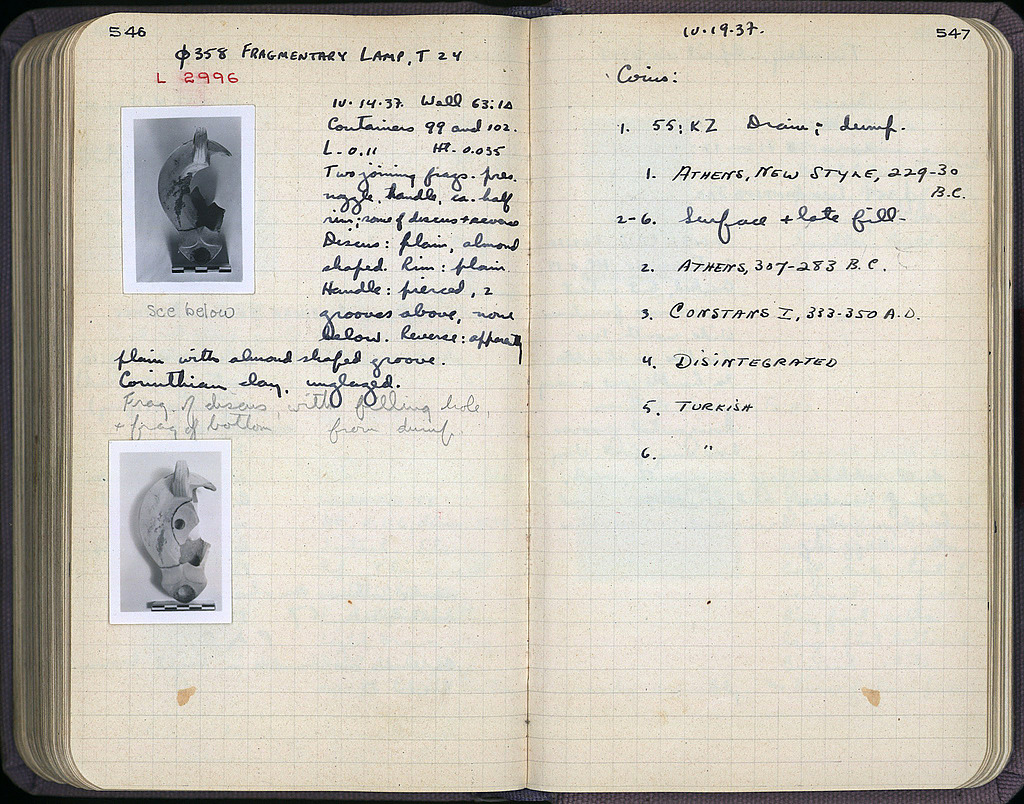 546
φ358 FRAGMENTARY LAMP, T 24
L 2996
IV·14·37. Well 63:ΙΔ
Containers 99 and 102.
L- 0.11 Ht- 0.035
Two joining frags. pres.
nozzle, handle, ca. half
rim; some of discus + reverse
Discus: plain, almond
shaped. Rim: plain.
Handle: pierced, 2
grooves above, none
below. Reverse: apparently
plain with almond shaped groove.
Corinthian clay, unglazed.
See below
Frag. of discus, with filling hole,
+ frag of bottom from dump.
IV·19·37.
547
Coins:
1. 55:ΚΖ Drain; dump.
1. ATHENS, NEW STYLE, 229-30
B.C.
2-6. Surface + late fill-
2. ATHENS, 307-283 B.C.
3. CONSTANS I, 333-350 A.D.
4. DISINTEGRATED
5. TURKISH
6. "